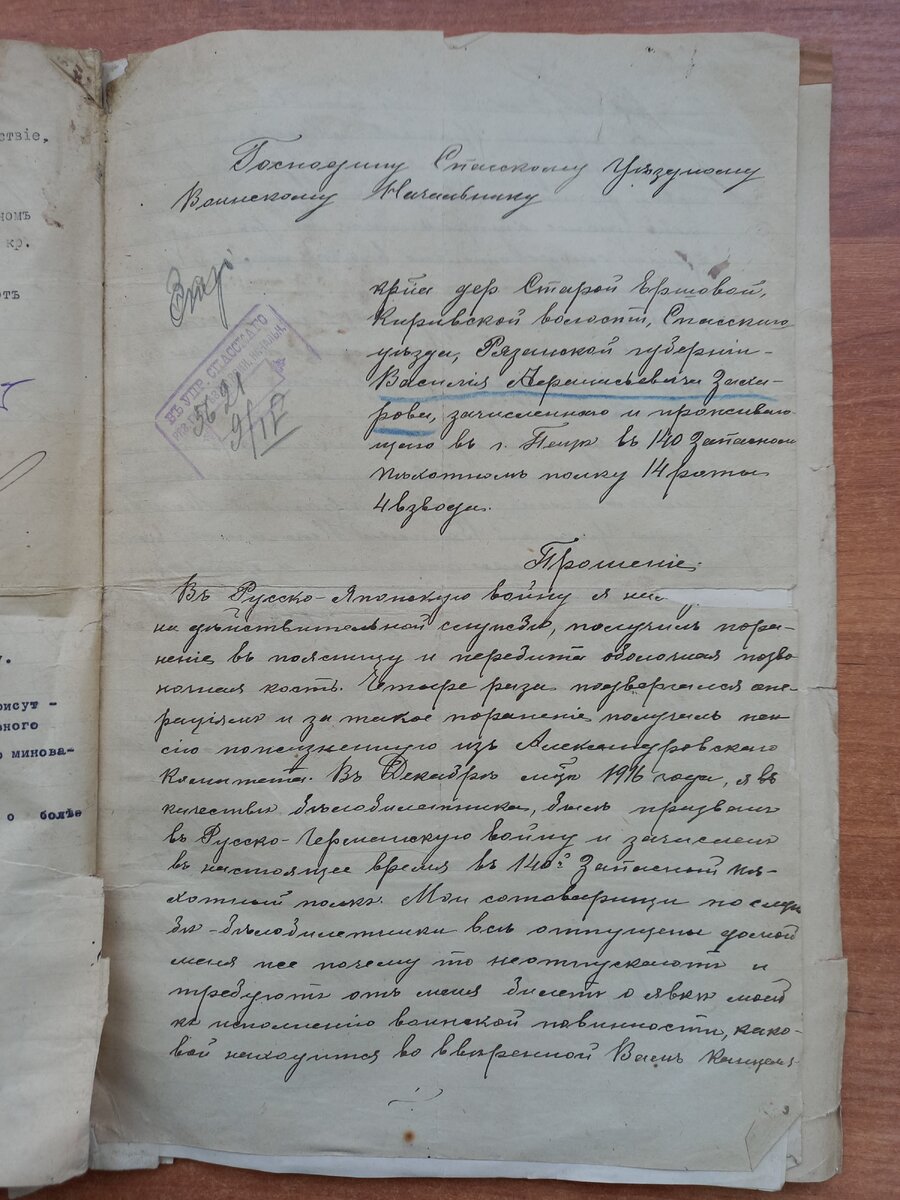 ствіе,
номъ
кр.
отъ
рисут-
вного
о минова-
о болѣе
Господину Спасскому Уѣздному
Воинскому Начальнику
ВЪ УПР. СПАССКАГО
5621
9/IV
кр-на дер Старой Ершовой,
Киривской волости, Спасскаго
уѣзда, Рязанской губерніи-
Василія Афанасьевича Заха-
рова, зачисленнаго и проживаю
щаго въ г. Пензѣ въ 140 Запасном
пѣхотномъ полку 14 роты
4 взвода.
Прошеніе.
Въ Русско-Японскую войну я на
на дѣйствительной службѣ, получилъ пора-
неніе въ поясницу и перебита оболочная позво
ночная кость. Четыре раза подвергался опе-
раціямъ и за такое пораненіе получилъ пен
сію пожизненную изъ Александровскаго
Комитета. Въ Декабрѣ м-цѣ 1916 года, я въ
качествѣ бѣлобилетника, былъ призванъ
въ Русско-Германскую войну и зачисленъ
въ настоящее время въ 140й Запасный пѣ-
хотный полкъ. Мои сотоварищи по служ
бѣ-бѣлобилетники всѣ отпущены домой
меня же почему то неотпускаютъ и
требуютъ отъ меня билетъ о явкѣ моей
къ исполненію воинской повинности, како-
вой находится во ввѣренной Вамъ Канцеля-